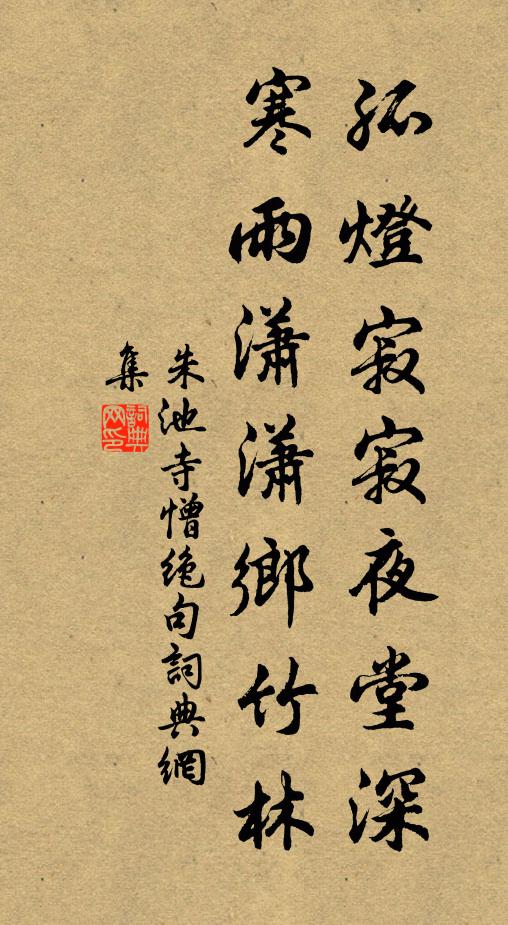 孤燈寂寂夜堂深
寒雨瀟瀟鄉竹林
朱池寺憎絶句詞典網
集
詞典
网印